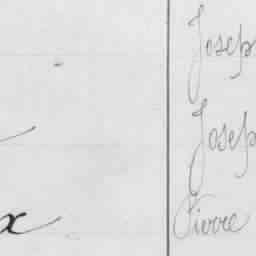 Josep
Josep
x Pierre